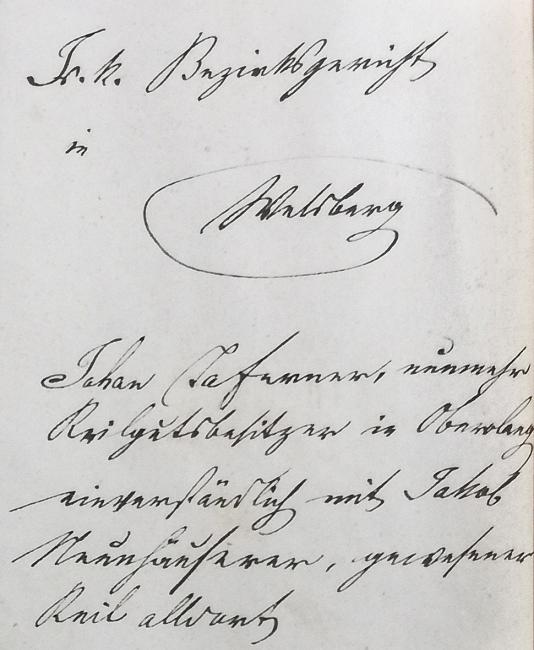 K. k. Bezirksgericht
in
Welsberg
Johan Taferner, nunmehr
Keilgutsbesitzer in Oberolang
einverständlich mit Jakob
Neunhäuserer, gewesener
Keil alldort